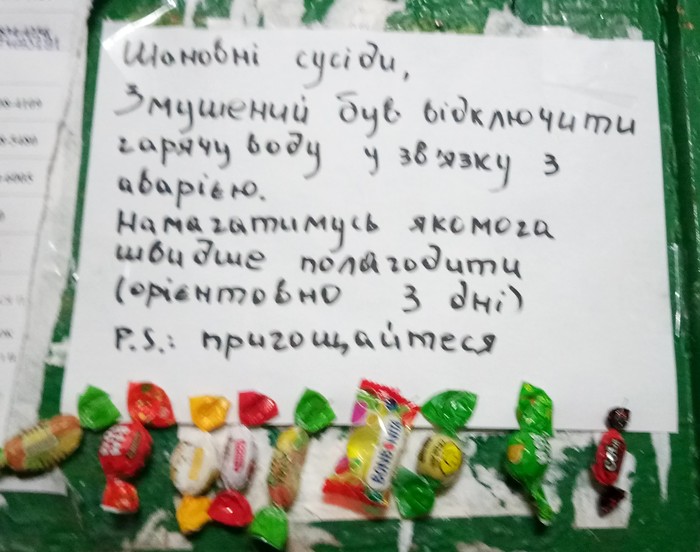 Шановні сусіди,
Змушений був відключити
гарячу воду у зв'язку з
аварією.
Намагатимусь якомога
швидше полагодити
(орієнтовно 3 дні)
P.S.: пригощайтеся